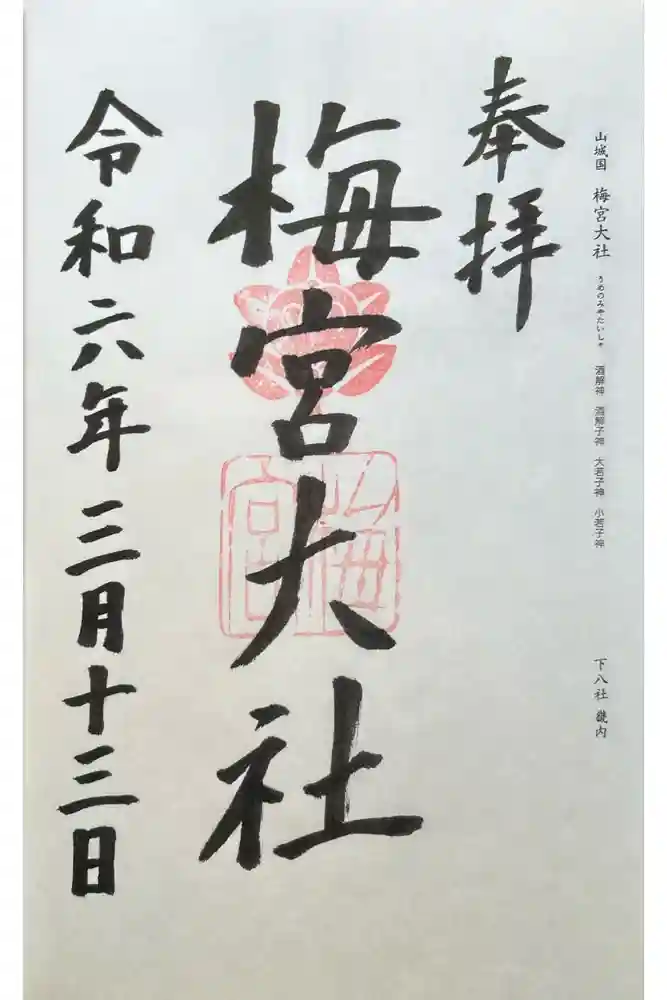 山城国 梅宮大社 うめのみやたいしゃ 酒解神 酒解子神 大若子神 小若子神 下八社 畿内
奉拝
梅宮大社
梅宮
令和六年三月十三日